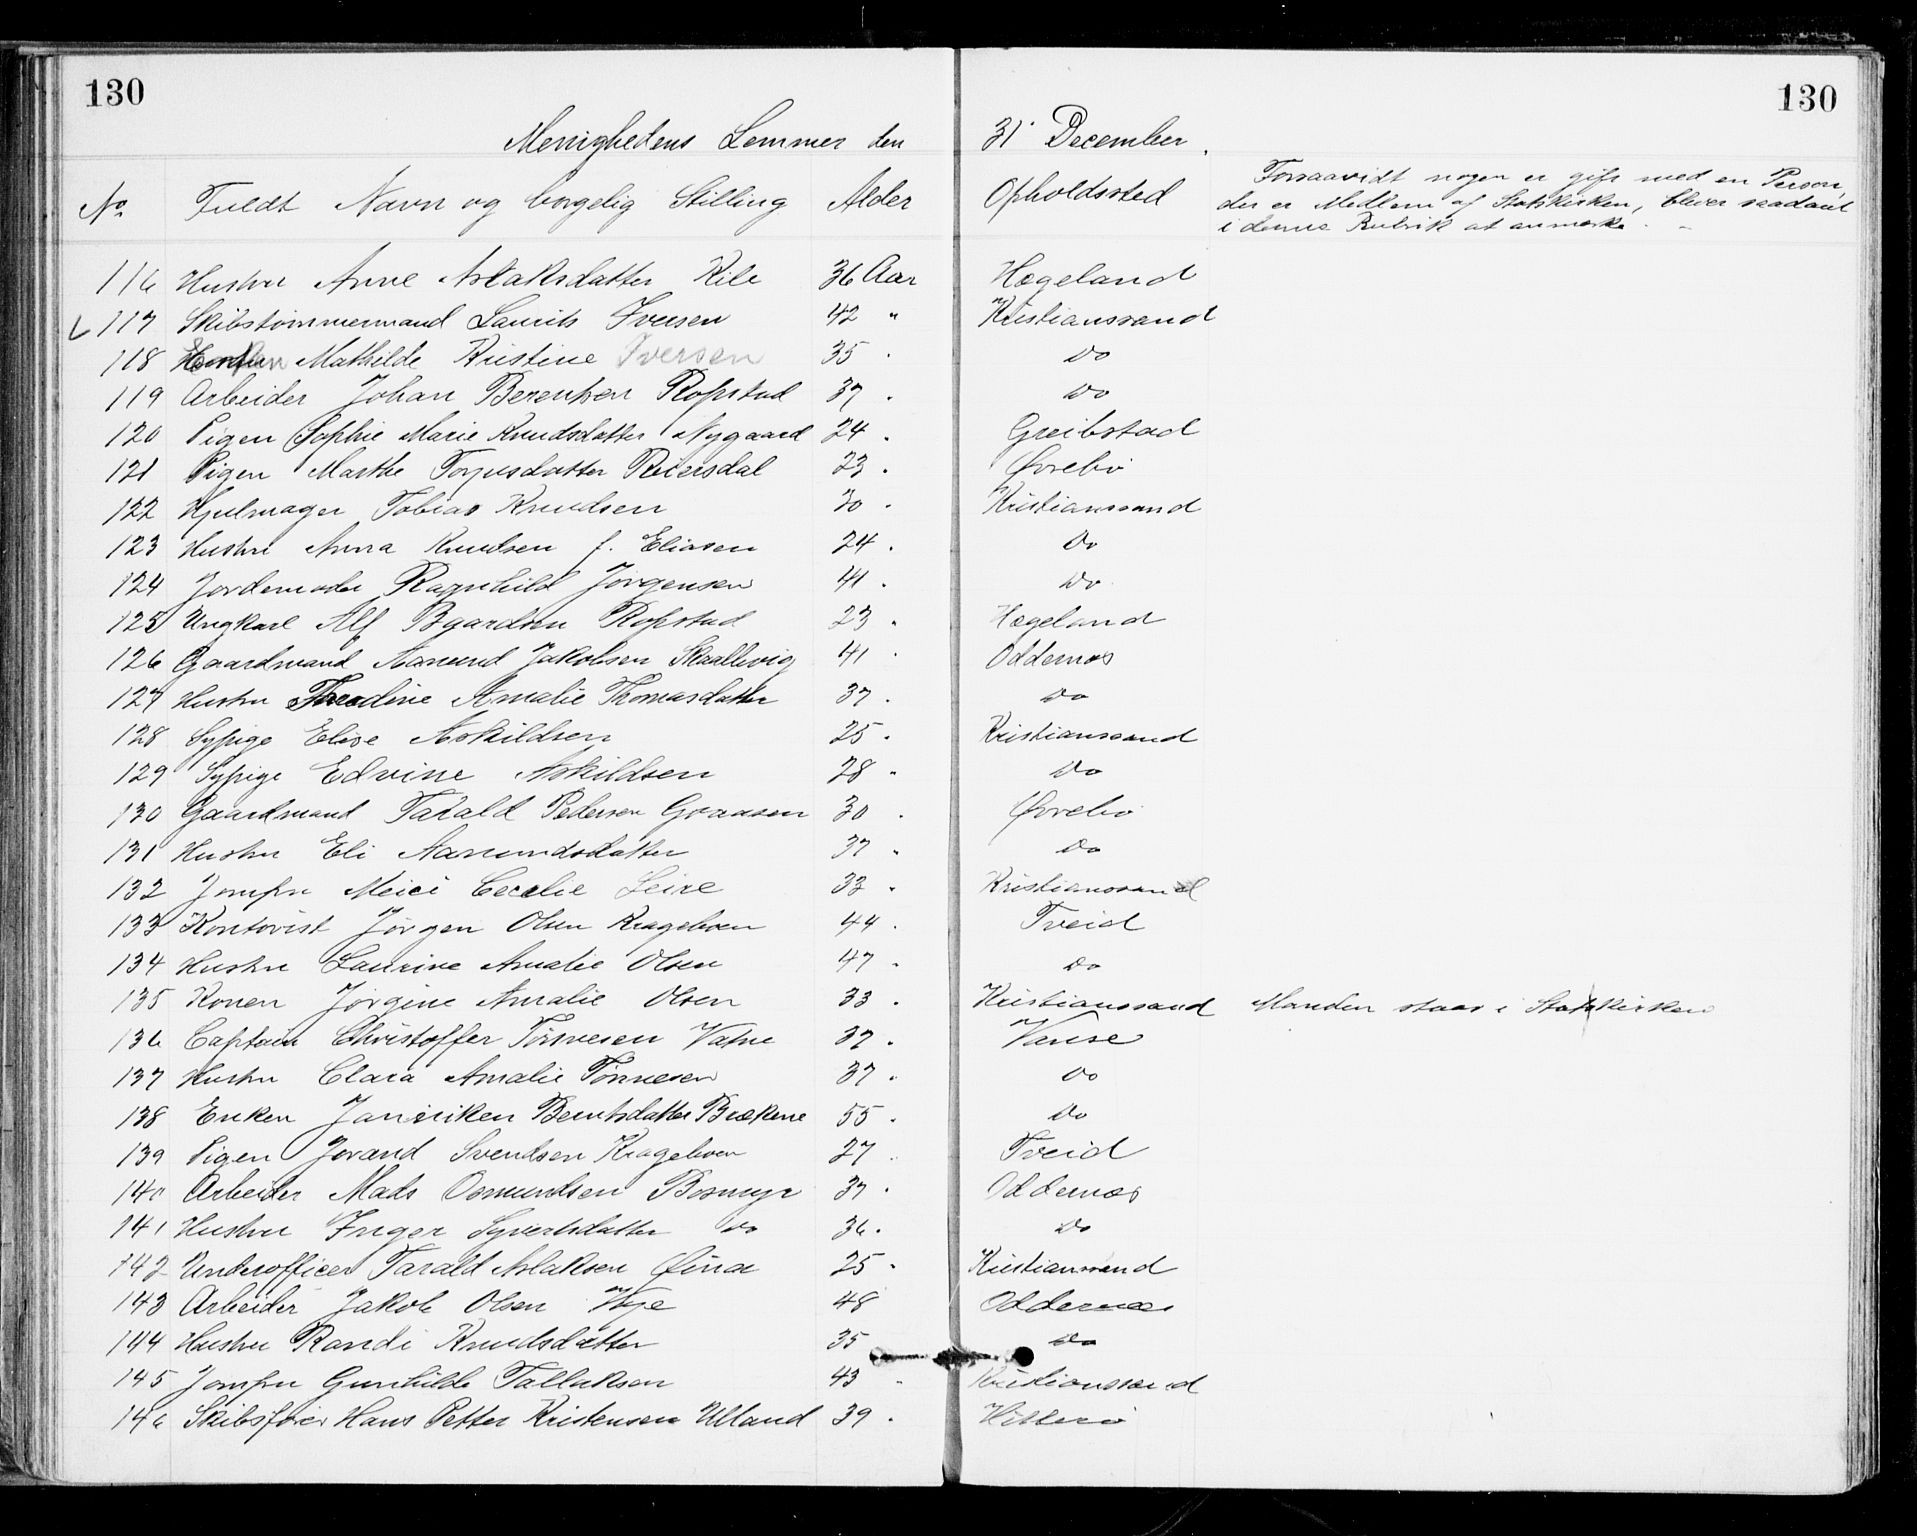 130 130
Menighedens Lemmer den 31' December
No Fuldt Navn og borgelig Stilling Alder Opholdssted Forsaavidt nogen er gift med en Person,
der er Medlem af Statskirken, bliver saadant
i denne Rubrik at anmærke.
116 Hustru Anne Aslaksdatter Kile 36 Aar Hægeland
117 Skibstømmermand Laurits Iversen 42 " Kristianssand
118 Mathilde Kristine Iversen 35 Do
119 Arbeider Johan Berentsen Ropstad 37 Do
120 Pigen Sophie Marie Knudsdatter Nygaard 24 Greibstad
121 Pigen Marthe Torjusdatter Reiersdal 23 Øvrebø
122 Hjulmager Tobias Knudsen 30 Kristianssand
123 Hustru Anna Knudsen f. Eliasen 24 Do
124 Jordemoder Ragnhild Jørgensen 41 Do
125 Ungkarl Alf Baardsen Ropstad 23 Hægeland
126 Gaardmand Aanund Jakobsen Skaallevig 41 Oddernæs
127 Hustru Thredine Amalie Thomasdatter 37 Do
128 Sypige Elise Askildsen 25 Kristianssand
129 Sypige Edvine Askildsen 28 Do
130 Gaardmand Tarald Pedersen Graasen 30 Øvrebø
131 Hustru Eli Aanundsdatter 37 Do
132 Jomfru Meici Cecelie Leire 33 Kristianssand
133 Kontorist Jørgen Olsen Krageboen 44 Tveid
134 Hustru Laurine Amalie Olsen 47 Do
135 Konen Jørgine Amalie Olsen 33 Kristianssand Manden staar i Statskirken
136 Captain Christoffer Tønnesen Vatne 37 Vanse
137 Hustru Clara Amalie Tønnesen 37 Do
138 Enken Janniken Berntsdatter Brekene 55 Do
139 Pigen Jorand Svendsen Krageboen 27 Tveid
140 Arbeider Mads Osmundsen Bosmyr 37 Oddernæs
141 Hustru Inger Syvertsdatter Do 36 Do
142 Underofficer Tarald Aslaksen Øina 25 Kristianssand
143 Arbeider Jakob Olsen Veje 48 Oddernæs
144 Hustru Randi Knudsdatter 35 Do
145 Jomfru Gunhilde Tallaksen 43 Kristianssand
146 Skibsfører Hans Petter Kristensen Ulland 39 Hitterø